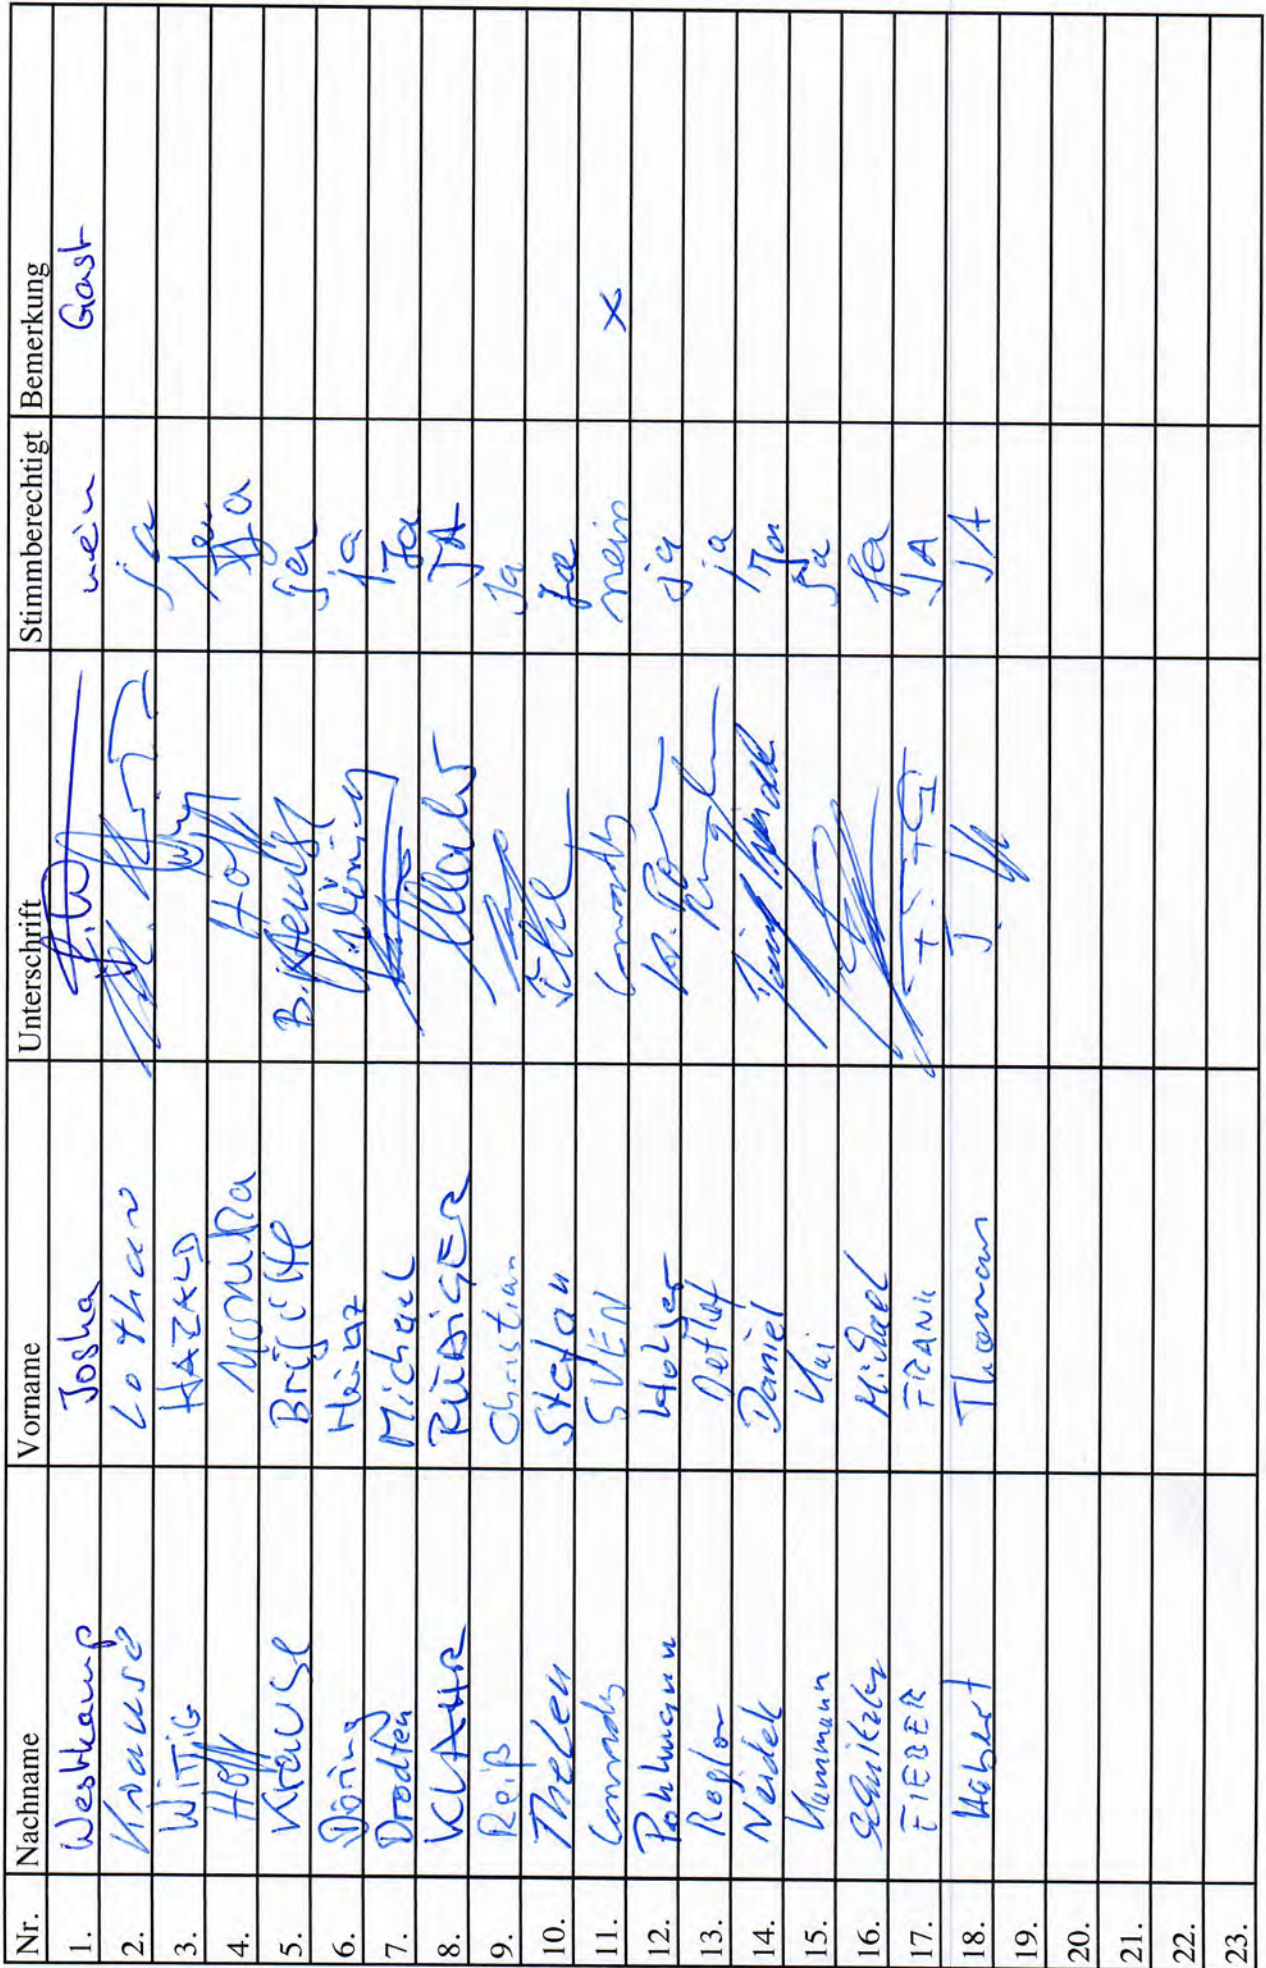 Nr. Nachname Vorname Unterschrift Stimmberechtigt Bemerkung
1. Westkamp Joska nein Gast
2. Krause Lothar ja
3. WiTTiG HARALD
4. Hoff Monika Hoff Ja
5. Krause Brigitte ja
6. Döring Heinz ja
7. Michael Ja
8. KLAHR RÜDIGER JA
9. Reiß Christian Ja
10. Thelen Stefan Ja
11. SVEN nein x
12. Pohlmann Holger ja
13. Detlef ja
14. Neidek Daniel
15. Hammann Kai Ja
16. Michael Ja
17. FIEBER FRANK JA
18. Thomas JA
19.
20.
21.
22.
23.